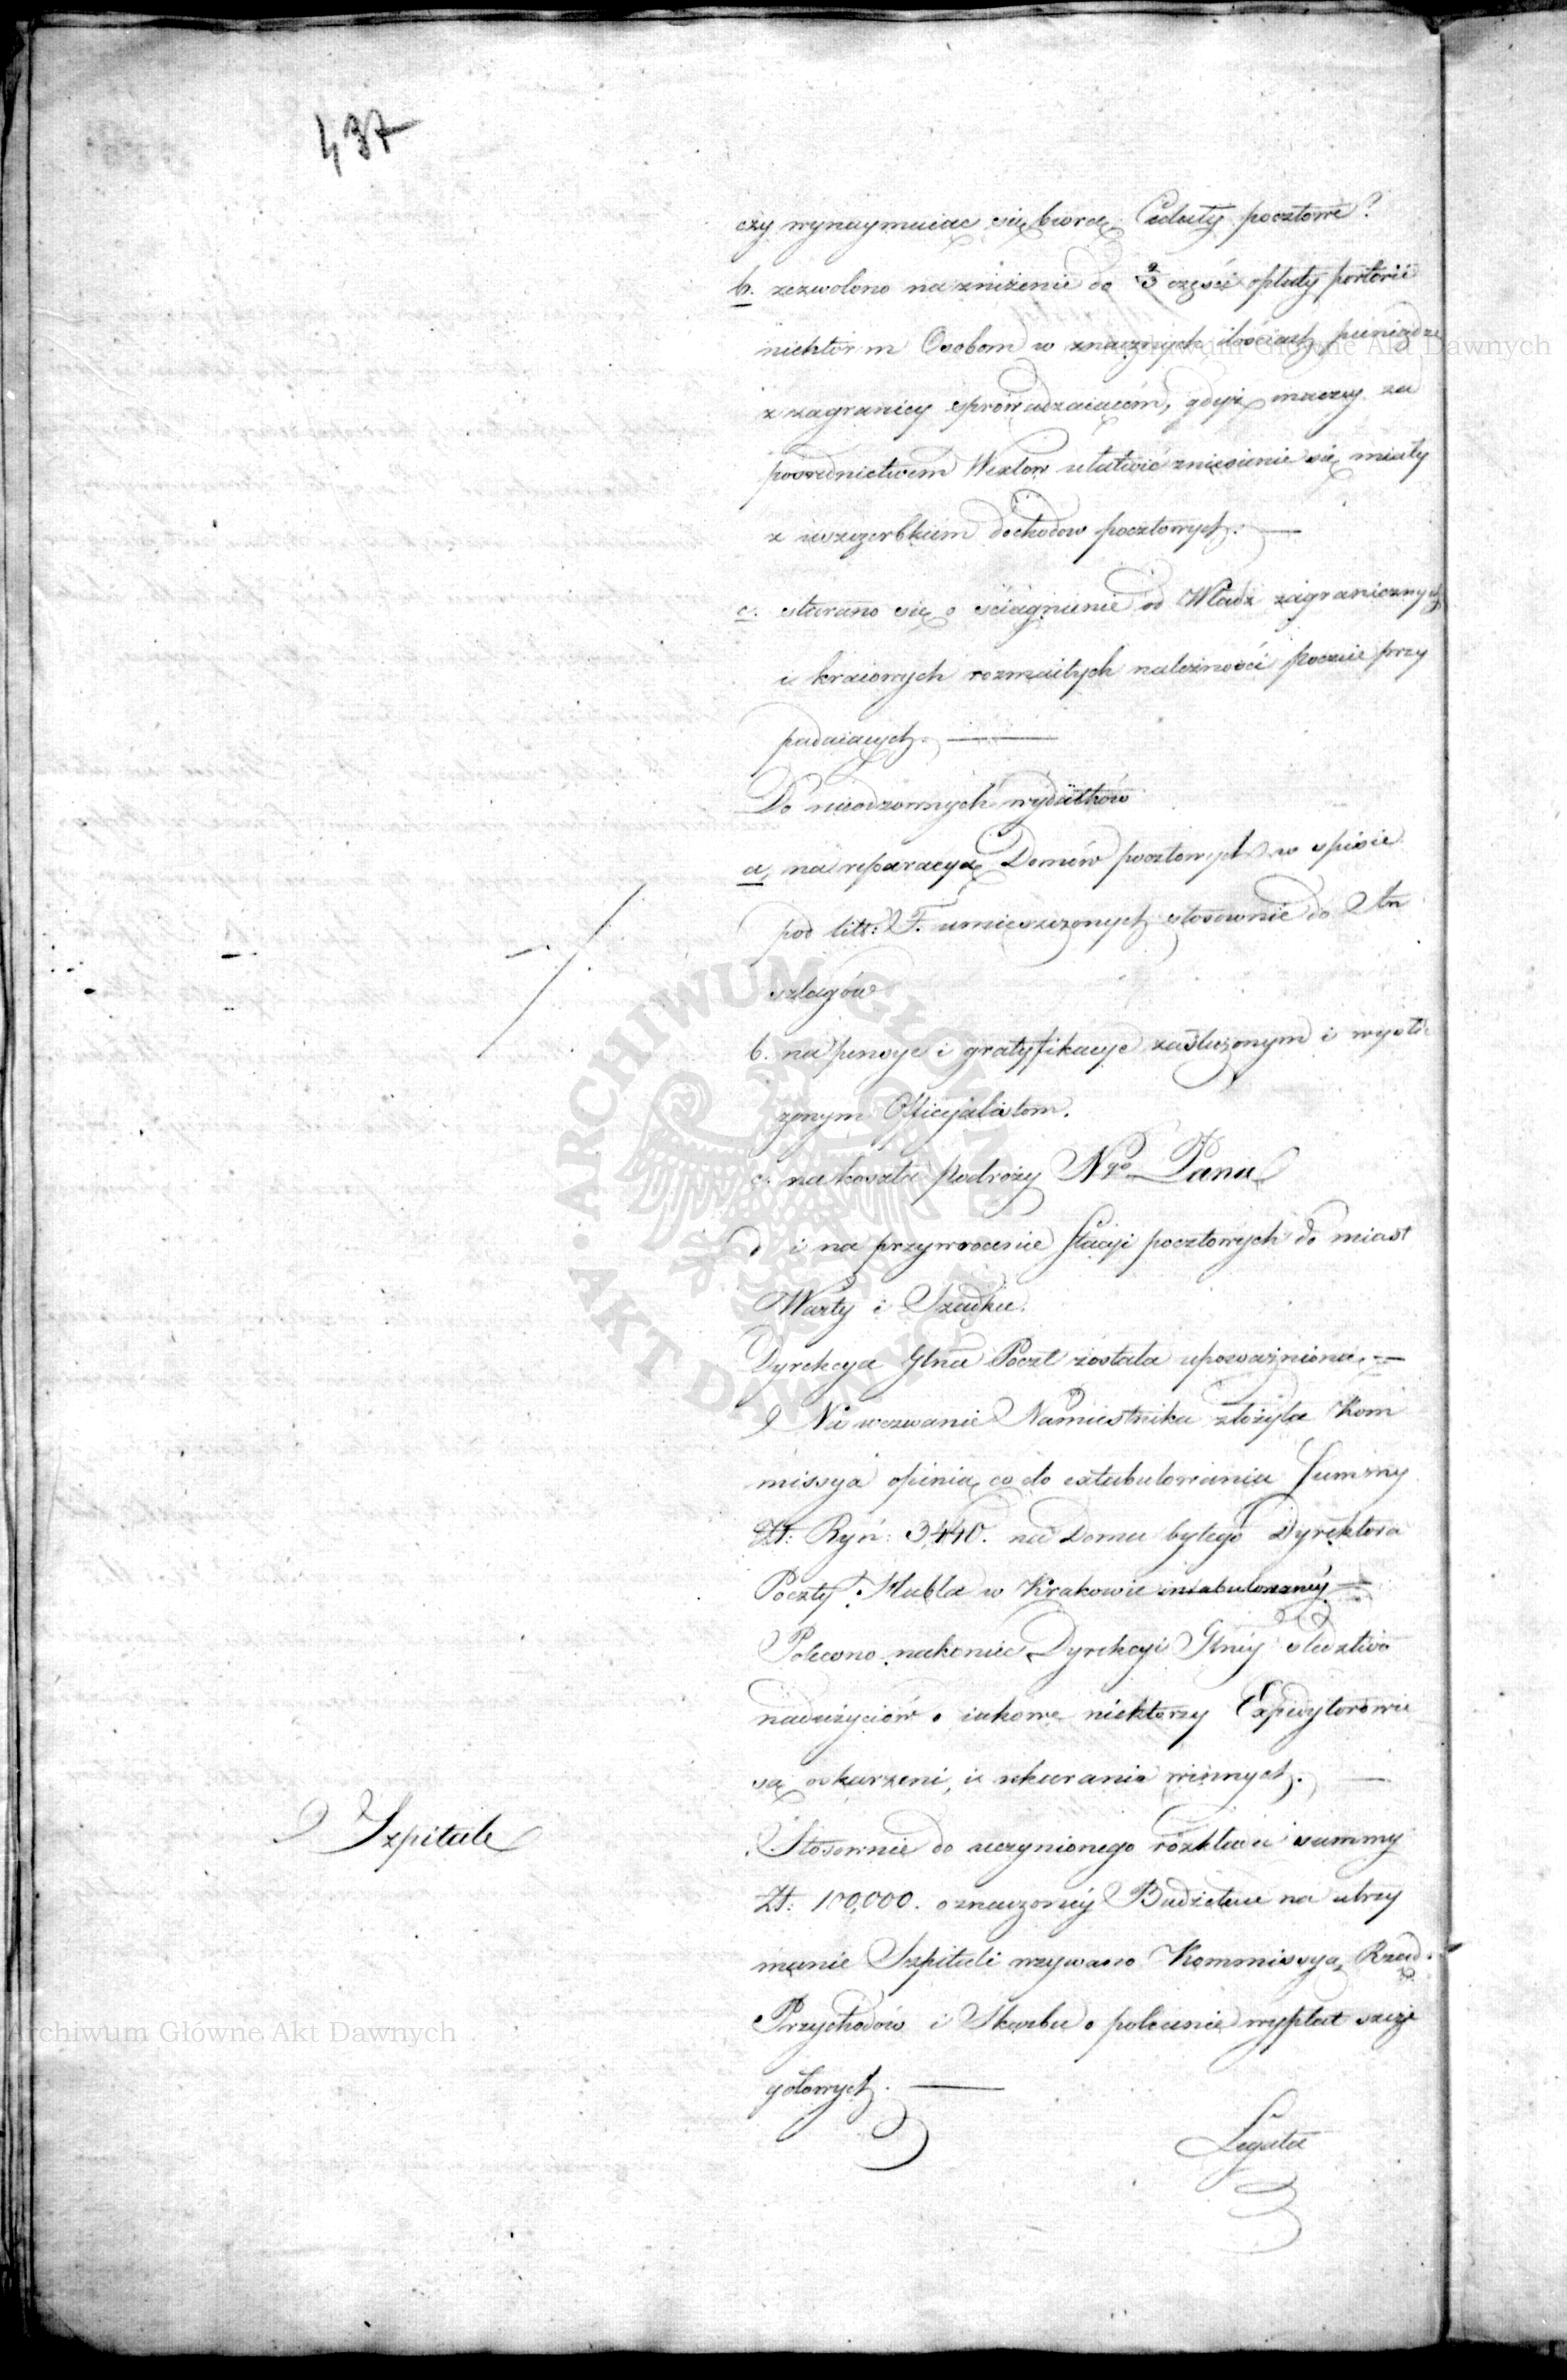 437
czy wynaymuiąc się biorą Ceduły pocztowe?
b. zezwolono na zniżenie do 2/3 części opłaty portorii
niektórm Osobom w znacznych ilościach pieniądze
z zagranicy sprowadzaiącem, gdyż inaczey za
posrednictwem Wexlow ułatwić zniesienie się miały
z uszczerbkiem dochodow pocztowych. —
c. starano się o ściągnienie od Władz zagranicznych
i kraiowych rozmaitych należności poczcie przy
padaiących. —
Do nieodzownych wydatków
a, na reparacyą Domów pocztowych w spisie
pod litt: F. umieszczonych stosownie do An
szlagów
b. na pensye i gratyfikacye zasłużonym i wysłu
żonym Officyalistom.
c. na koszta podroży Ngo Pana
d i na przywrocenie stacyi pocztowych do miast
Warty i Szadku.
Dyrekcya Głna Poczt została upoważniona. —
Na wezwanie Namiestnika złożyła Kom
missya opinią co do extabulowania Summy
Zł: Ryń: 3,440. na Domu byłego Dyrektora
Poczty w Krakowie intabulowaney —
Polecono nakoniec Dyrekcyi Głnéy sledztwo
nadużyciów o iakowe niektorzy Expedytorowie
są oskarzeni, i ukarania winnych. —
Szpitale
Stosownie do uczynionego rozkładu summy
Zł: 100,000. oznaczonéy Budżetem na utrzy
manie Szpitali wzywano Kommissyą Rząd.
Przychodów i Skarbu o polecenie wypłat szcze
gółowych. —
Legata
Archiwum Główne Akt Dawnych
Archiwum Główne Akt Dawnych
ARCHIWUM GŁÓWNE
AKT DAWNYCH